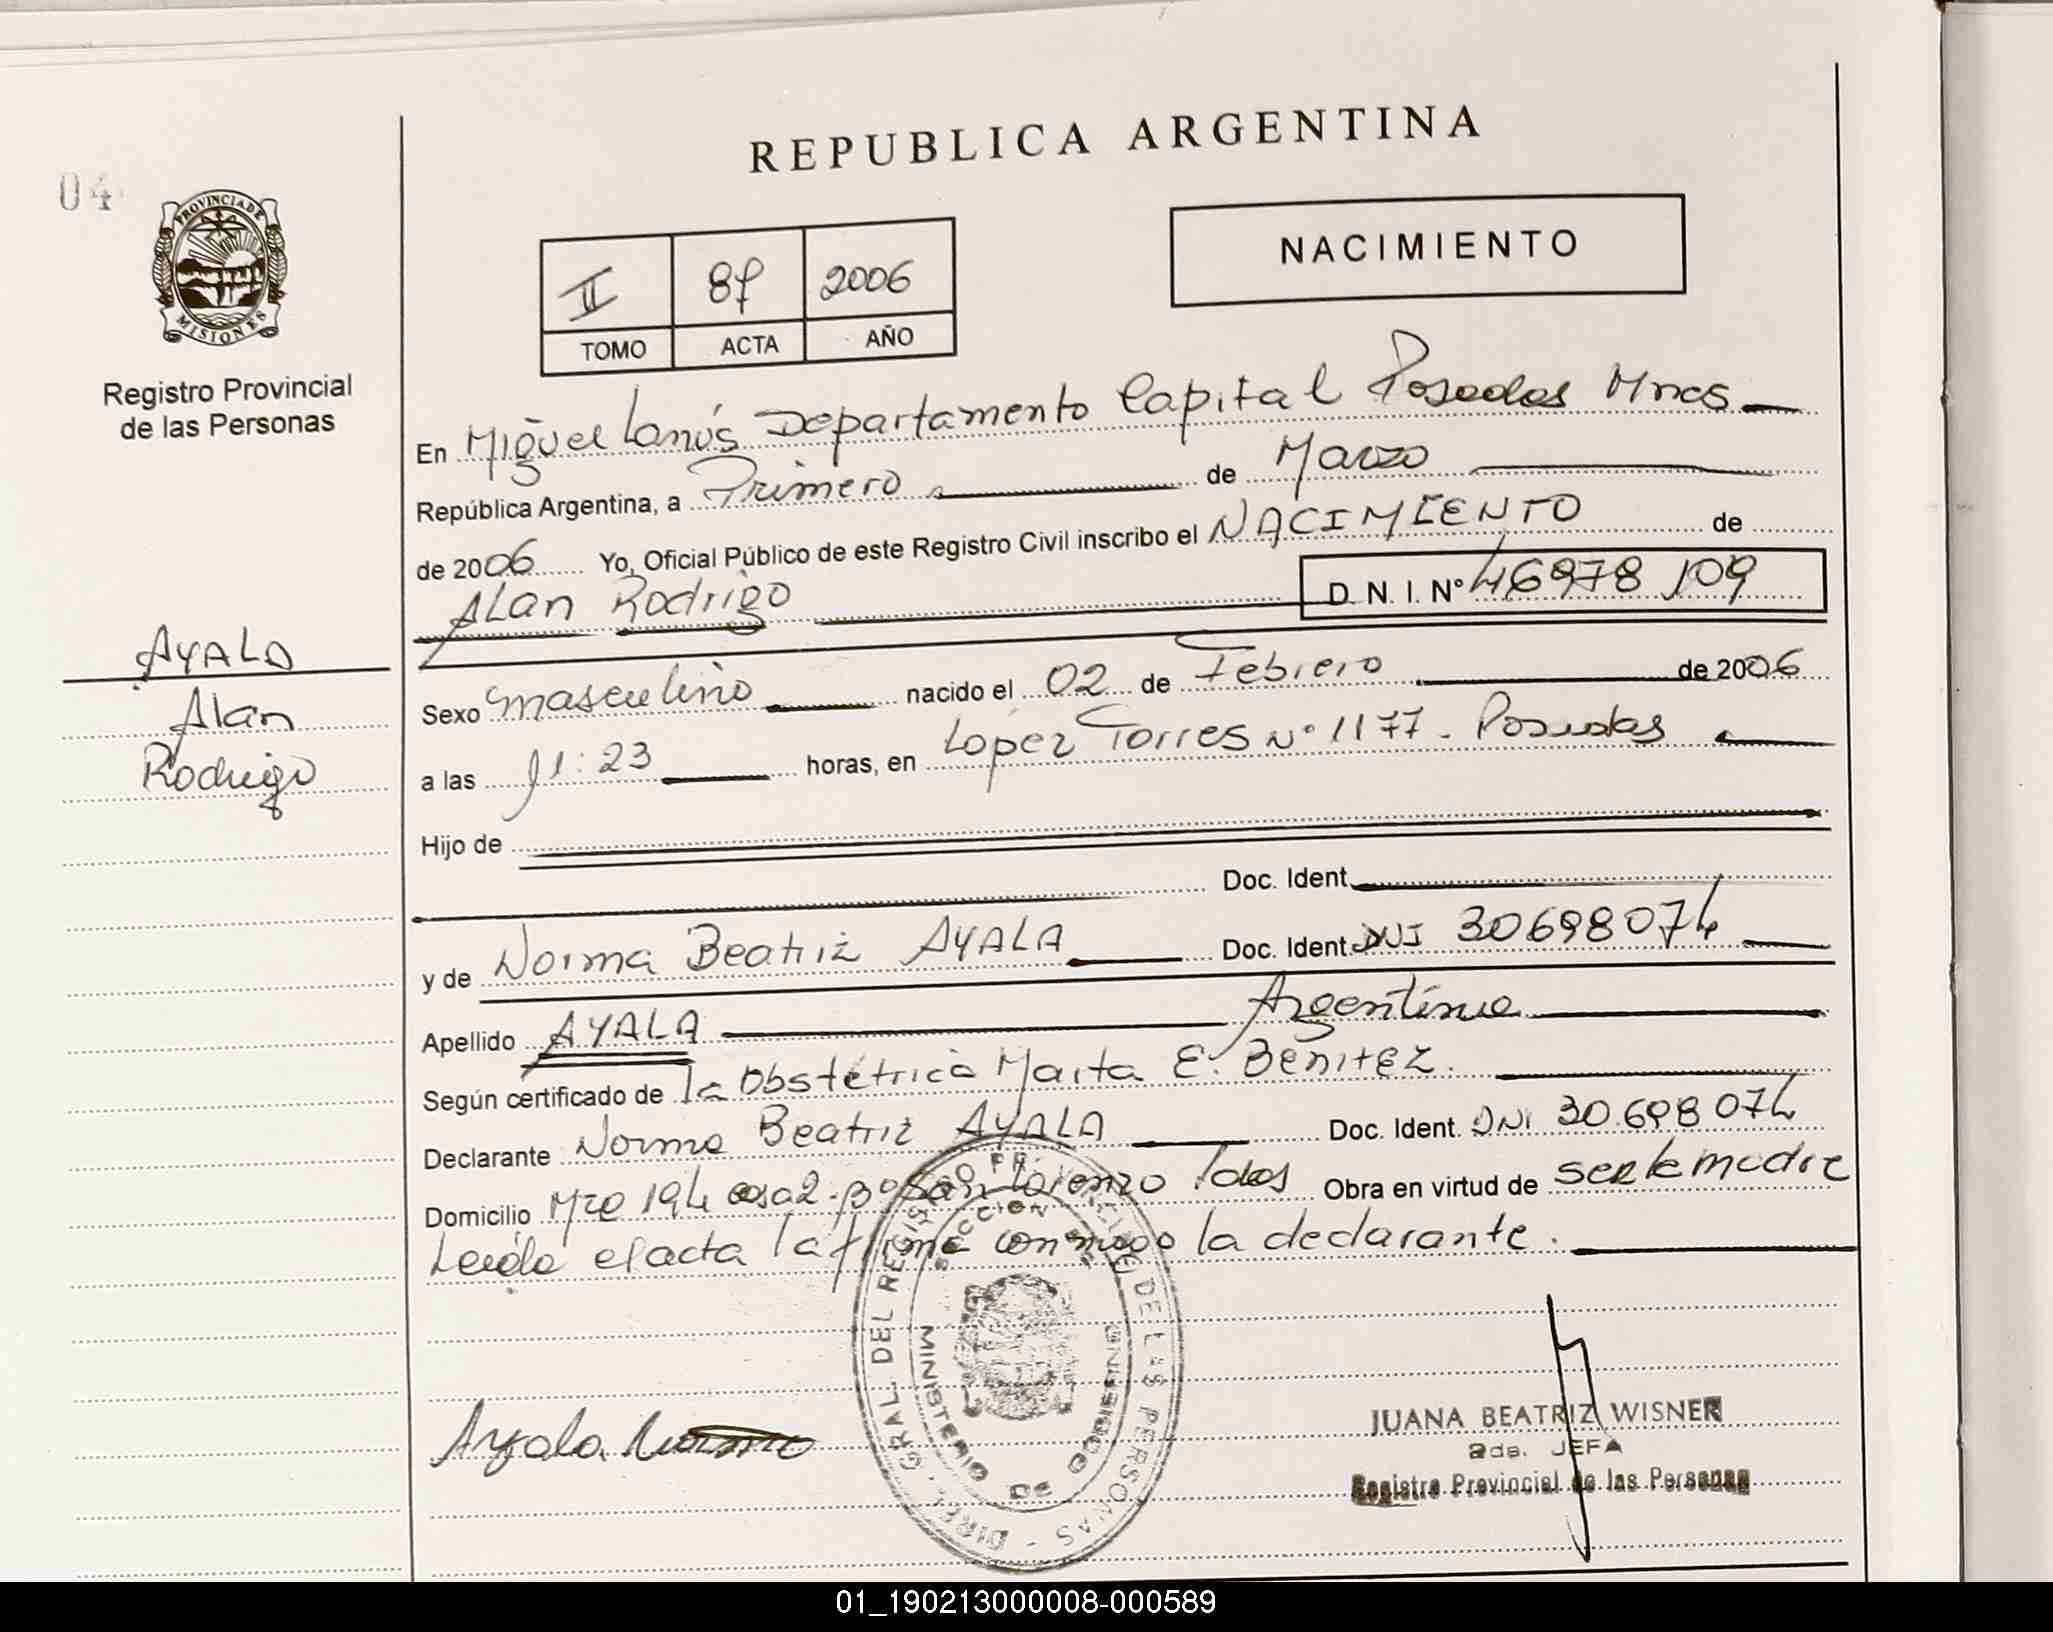 REPUBLICA ARGENTINA
04
PROVINCIA DE
MISIONES
Registro Provincial
de las Personas
NACIMIENTO
II 2006
TOMO ACTA AÑO
En Miguel Lanús Departamento Capital Posadas Mnes
República Argentina, a Primero de Marzo
de 2006 Yo, Oficial Público de este Registro Civil inscribo el NACIMIENTO de
ALan Rodrigo D. N. I. Nº 46978109
AYALA
Alan
Rodrigo
Sexo masculino nacido el 02 de Febrero de 2006
a las 11:23 horas, en Lopez Torres Nº 1177 - Posadas
Hijo de
Doc. Ident.
y de Norma Beatriz AYALA Doc. Ident. DNI 30698074
Apellido AYALA Argentina
Según certificado de la Obstétrica Marta E. BENITEZ.
Declarante Norma Beatriz AYALA Doc. Ident. DNI 30.698074
Domicilio Mzo 194 casa 2 - Bº San Lorenzo Pdas Obra en virtud de ser la madre
Leida el acta la firma conmigo la declarante.
DIREC. GRAL. DEL REGISTRO PROVINCIAL DE LAS PERSONAS
SECCION
MINISTERIO DE GOBIERNO
Ayala Norma
JUANA BEATRIZ WISNER
2da. JEFA
Registro Provincial de las Personas
01_190213000008-000589